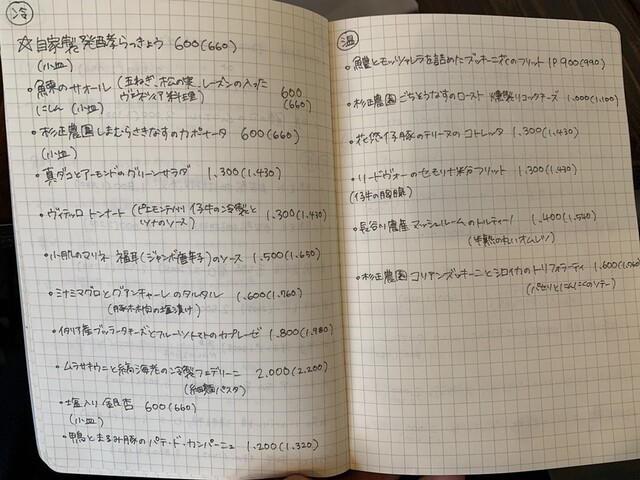 冷
☆自家製 発酵らっきょう 600(660)
(小皿)
・鰊のサオール (玉ねぎ、松の実、レーズンの入った 600
にしん (小皿) ヴェネツィア料理) (660)
・杉正農園 しまむらさきなすのカポナータ 600(660)
(小皿)
・真ダコとアーモンドのグリーンサラダ 1.300(1.430)
・ヴィテッロ トンナート (ピエモンテ州 仔牛の冷製と 1.300(1.430)
ツナのソース)
・小肌のマリネ 福耳(ジャンボ唐辛子)のソース 1.500(1.650)
・ミナミマグロとグアンチャーレのタルタル 1.600(1.760)
(豚ホホ肉の塩漬け)
・イタリア産ブッラータチーズとフルーツトマトのカプレーゼ 1.800(1.980)
・ムラサキウニと縞海老の冷製フェデリーニ 2.000(2.200)
(細麺パスタ)
・塩入り 銀杏 600(660)
(小皿)
・鴨とまるみ豚のパテ・ド・カンパーニュ 1.200(1.320)
温
・鱧とモッツァレラを詰めたズッキーニ花のフリット 1P 900(990)
・杉正農園 ごちとうなすのロースト 燻製リコッタチーズ 1.000(1.100)
・花悠仔豚のテリーヌのコトレッタ 1.300(1.430)
・リードヴォーのセモリナ粉フリット 1.300(1.430)
(仔牛の胸腺)
・長谷川農産 マッシュルームのトルティーノ 1.400(1.540)
(半熟の丸いオムレツ)
・杉正農園 コリアンズッキーニとシロイカのトリフォラーティ 1.600(1.760)
(パセリとにんにくのソテー)